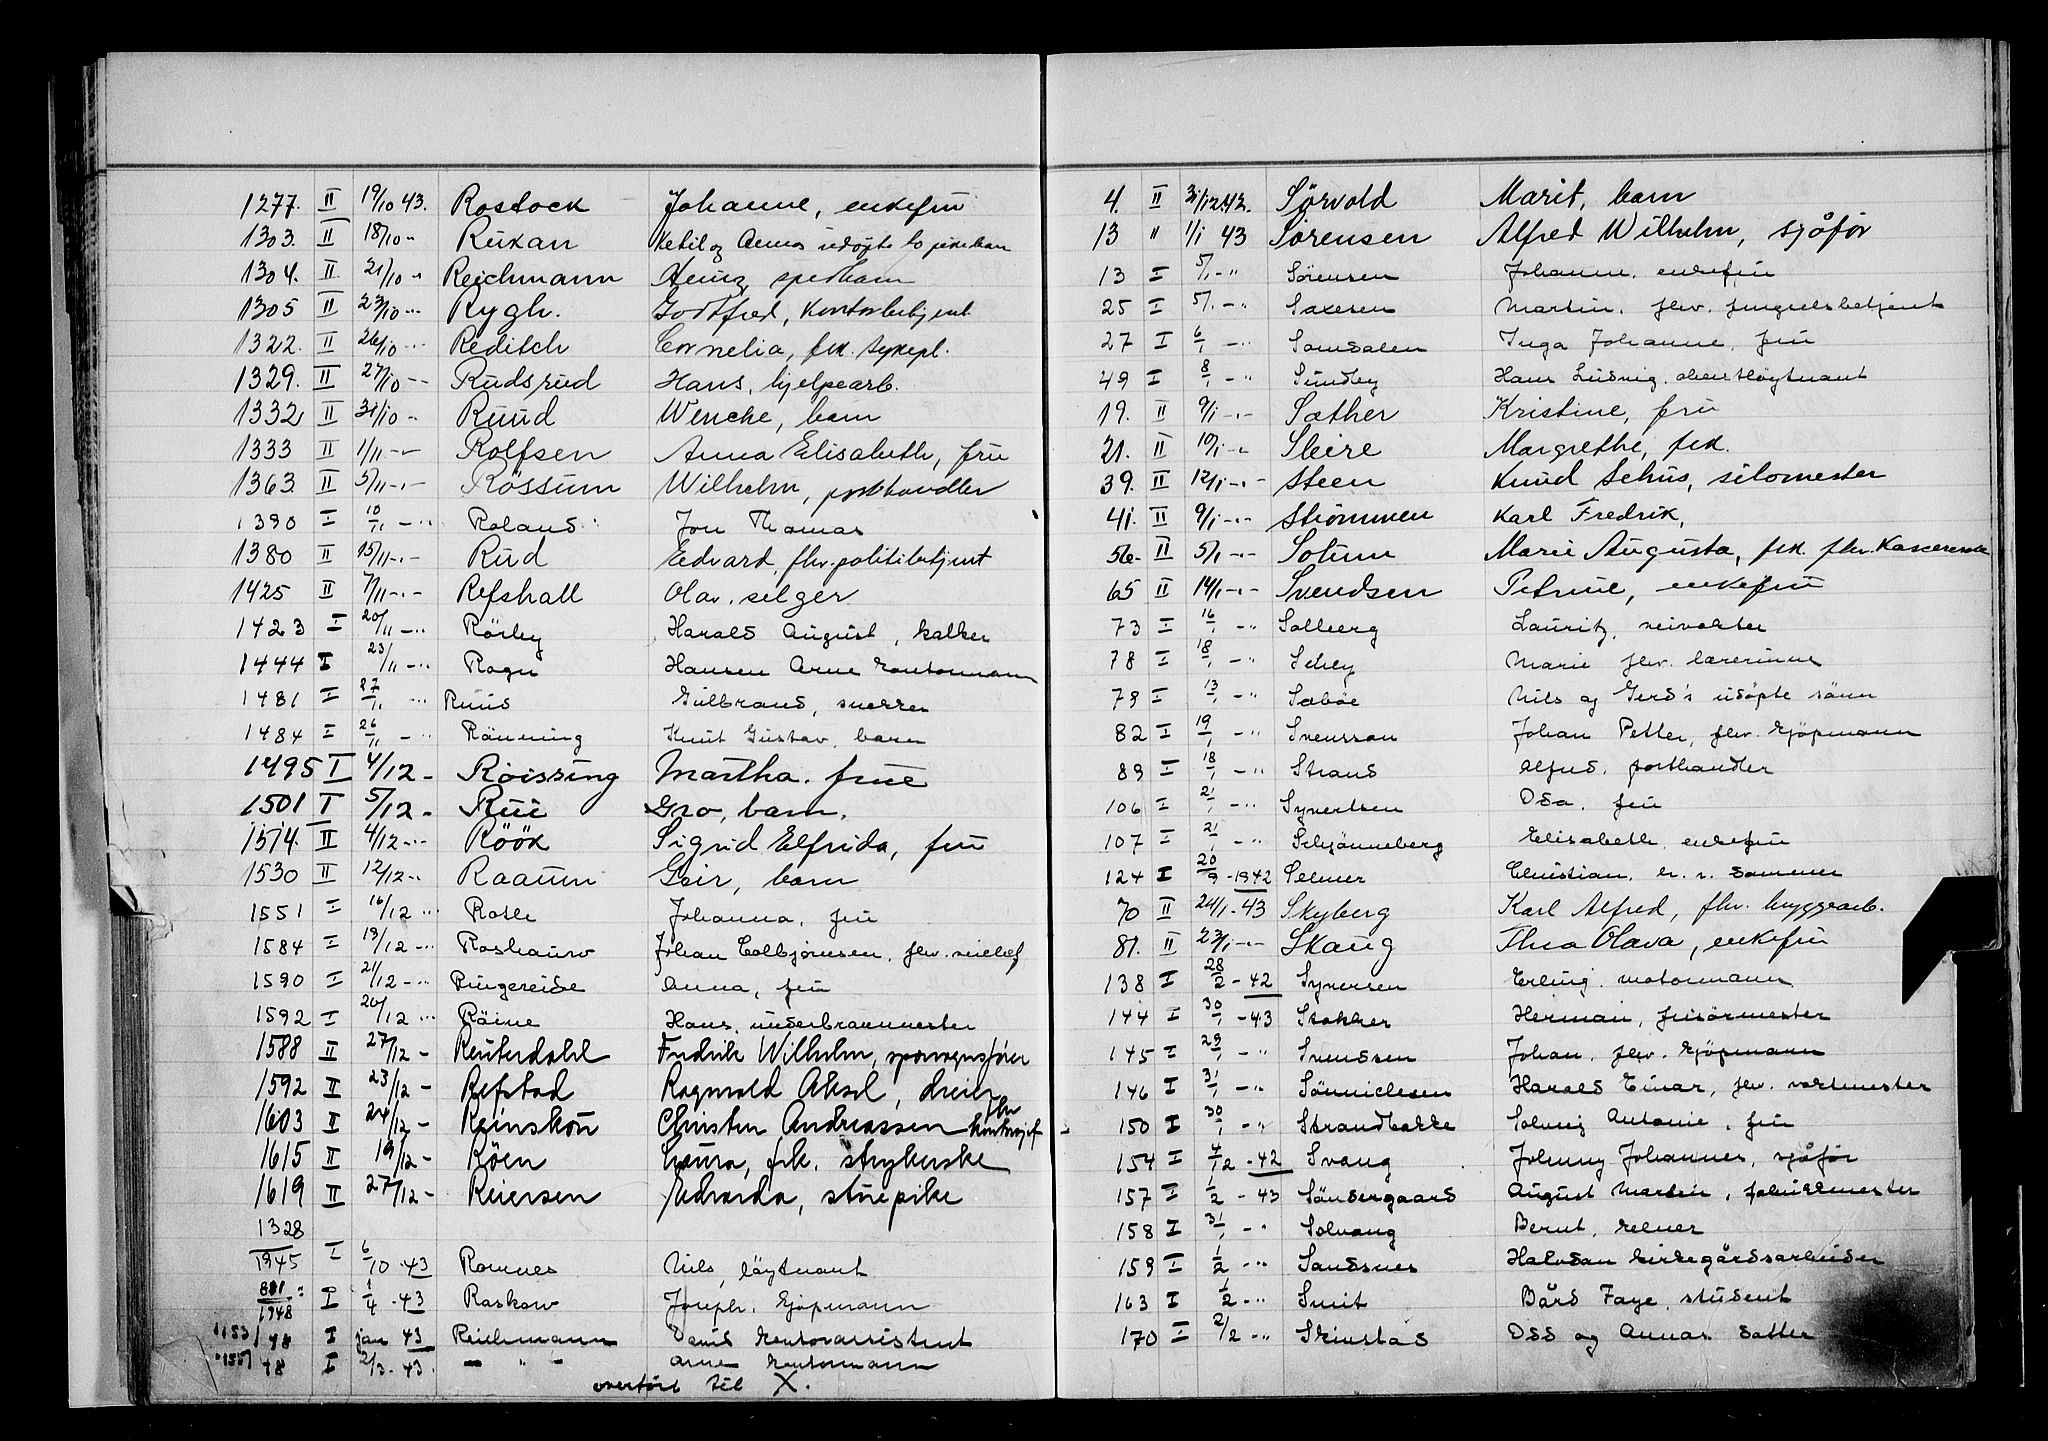 1277. II 19/10 43. Rostock Johanne, enkefru
1303. II 18/10 " Ruxan Ketil og Annas udøpte
1304. II 21/10 " Reichmann Heinz,
1305 II 23/10 -"- Rygh. Godtfred, kontorbetjent
1322. II 26/10 -"- Reditch Cornelia, frk. sykepl.
1329. II 27/10 -- Rudsrud Hans, hjelpearb.
1332 II 31/10 " Ruud Wenche, barn
1333 II 1/11 -- Rolfsen Anna Elisabeth, fru
1363. II 5/11 -.- Rössum Wilhelm, posthandler
1390 I 10/11 -" Roland Jon Thomas
1380 II 15/11 -.- Rud Edvard, fhv. politibetjent
1425 II 7/11 -.- Refshall Olav, selger
1423 I 20/11 -" Rörby Harald August, kalker
1444 I 23/11 -" Rogn Hansen Arne kontormann
1481 I 27/11 -" Ruud Gulbrand, snekker
1484 I 26/11 -" Rönning Knut Gustav, barn
1495 I 4/12 - Röissing Martha. frue
1501 I 5/12 - Rui Gro, barn.
1514. II 4/12 -"- Röök Sigrid Elfrida, fru
1530 II 12/12 -" Raaum Geir, barn
1551 I 16/12 -" Rolle Johanna, fru
1584 I 19/12 -" Roshauw Johan Colbjörnsen, fhv.
1590 I 21/12 -" Ringereide Anna, fru
1592 I 20/12 -" Röine Hans, underbrannmester
1588 II 27/12 - Reuterdahl Fredrik Wilhelm, sporvognsfører
1592 II 23/12 - Refstad Ragnvald Aksel, dreier
1603 II 24/12 - Reinskou Christen Andreassen fhv kontorsjef
1615 II 19/12 - Röen Laura, frk. strykerske
1619 II 27/12 - Reiersen Edvarda, stuepike
1328
1945 I 6/10 43 Romnes Nils, løytnant
881:
1948 I 1/4 - 43 Raskow Joseph. kjöpmann
1153 148 I jan 43 Reichmann kontorassistent
1557 48 I 2/3 - 43. - " - Arne kontormann
overført til X.
4. II 31/12 42. Sörvold Marit, barn
13 " 1/1 43 Sörensen Alfred Wilhelm, sjåför
13 I 5/1 -" Sörensen Johanne, enkefru
25 I 5/1 -" Saxesen Martin, fhv. fengselsbetjent
27 I 6/1 -" Samdalen Inga Johanne, fru
49 I 8/1 -" Sundby Hans Ludvig, oberstløytnant
19. II 9/1 -.- Sæther Kristine, fru
21. II 10/1 -- Sleire Margrethe, frk.
39. II 12/1 -.- Steen Knud Schus, silomester
41. II 9/1 -.- Strömmen Karl Fredrik,
56. II 5/1 -.- Solum Marie Augusta, frk. fhv. kassererske
65 II 14/1 -.- Svendsen Petrine, enkefru
73 I 16/1 -" Solberg Lauritz, veivokter
78 I 18/1 -" Schey Marie fhv. lærerinne
79 I 13/1 -" Sæböe Nils og Gerd's udöpte sönn
82 I 19/1 -" Svensson Johan Petter, fhv. kjöpmann
89 I 18/1 -" Strand Alfred, posthandler
106 I 21/1 -" Syvertsen Oda, fru
107 I 21/1 -" Schjönneberg Elisabeth, enkefru
124 I 20/9 - 1942 Selmer Christian, h. r. dommer
70 II 24/1 - 43 Skyberg Karl Alfred, fhv. bryggearb.
81. II 23/1 -.- Skaug Thea Olava, enkefru
138 I 28/2 - 42 Syversen Erling, motormann
144 I 30/1 - 43 Stokker Herman, frisörmester
145 I 29/1 -" Svendsen Johan, fhv. kjöpmann
146 I 31/1 -" Sönnichsen Harald Einar, fhv. vaktmester
150 I 30/1 -" Strandbakke Solveig Antonie, fru
154 I 4/12 - 42 Svang Johnny Johannes, sjåför
157 I 1/2 - 43 Söndergaard August Martin, fabrikkmester
158 I 31/1 -" Solvang Bernt, kelner
159 I 1/2 -" Sandsnes Halvdan kirkegårdsarbeider
163 I 1/2 -" Smit Bård Faye, student
170 I 2/2 -" Skinstad Odd og Annas datter